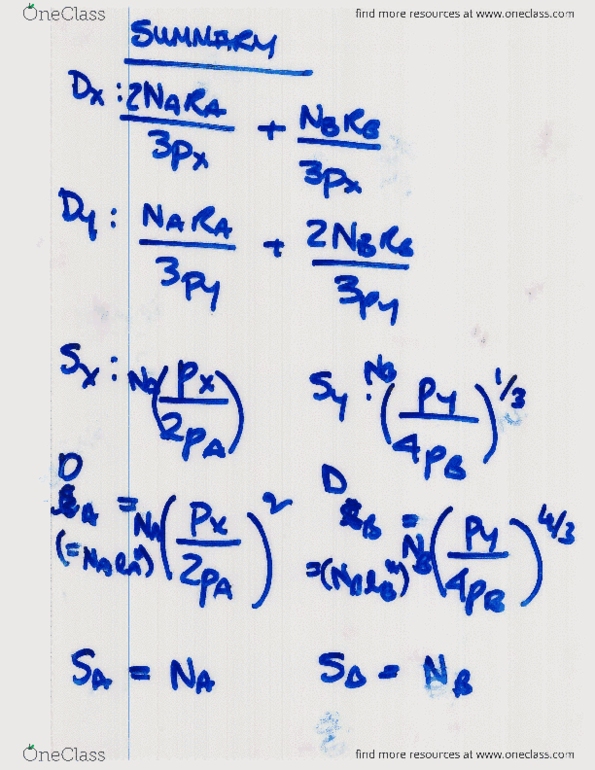 OneClass find more resources at www.oneclass.com
SUMMARY
Dx: 2NARA/3px + NBRB/3px
Dy: NARA/3py + 2NBRB/3py
Sx: NA(px/2pA) Sy: NB(py/4pB)^1/3
DA = NA(px/2pA)^2 DB = NB(py/4pB)^4/3
SA = NA SB = NB
OneClass find more resources at www.oneclass.com